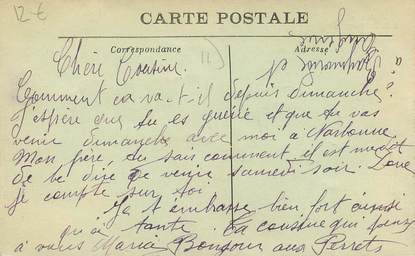 12 €
CARTE POSTALE
Correspondance
Adresse
Chère Cousine.
Comment ca va-t-il depuis dimanche?
J'espère que tu es guérie et que tu vas
venir dimanche avec moi a Narbonne.
Mon frère, tu sais comment il est me dit
de te dire de venir samedi soir. Donc
je compte sur toi.
Je t'embrasse bien fort ainsi
qu'à tante. Ta cousine qui pense
à vous Maria Bonjour aux Perrets